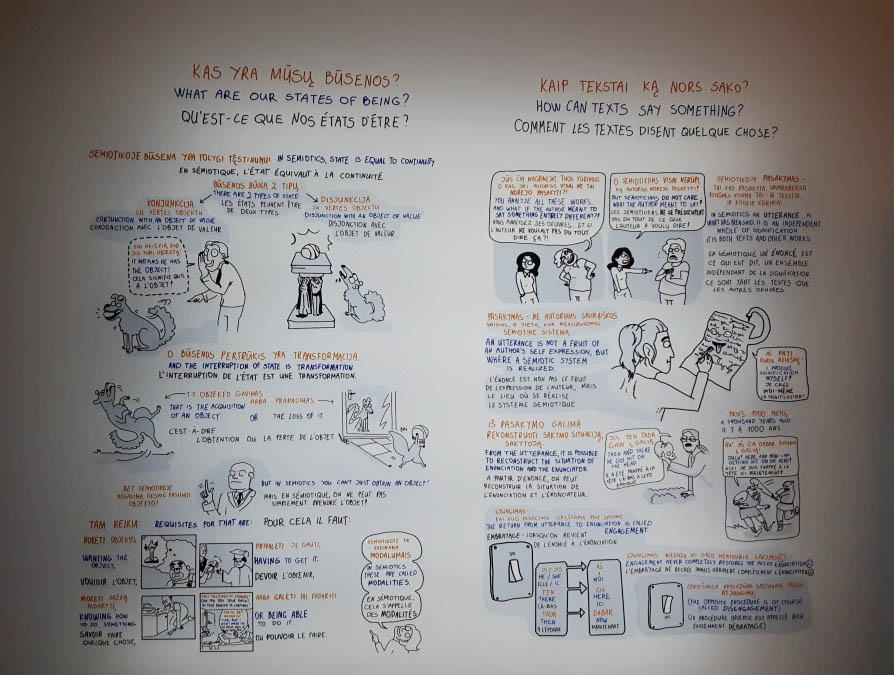 KAS YRA MŪSŲ BŪSENOS?
WHAT ARE OUR STATES OF BEING?
QU'EST-CE QUE NOS ÉTATS D'ÊTRE?
SEMIOTIKOJE BŪSENA YRA TOLYGI TĘSTINUMUI. IN SEMIOTICS, STATE IS EQUAL TO CONTINUITY
EN SÉMIOTIQUE, L'ÉTAT ÉQUIVAUT À LA CONTINUITÉ.
BŪSENOS BŪNA 2 TIPŲ
THERE ARE 2 TYPES OF STATE
LES ÉTATS PEUVENT ÊTRE
DE DEUX TYPES.
KONJUNKCIJA
SU VERTĖS OBJEKTU
CONJUNCTION WITH AN OBJECT OF VALUE
CONJONCTION AVEC L'OBJET DE VALEUR
DISJUNKCIJA
SU VERTĖS OBJEKTU
DISJUNCTION WITH AN OBJECT OF VALUE
DISJONCTION AVEC
L'OBJET DE VALEUR.
TAI REIŠKIA, KAD
JIS TURI OBJEKTĄ!
IT MEANS HE HAS
THE OBJECT!
CELA SIGNIFIE QU'IL
A L'OBJET!
O BŪSENOS PERTRŪKIS YRA TRANSFORMACIJA
AND THE INTERRUPTION OF STATE IS TRANSFORMATION
L'INTERRUPTION DE L'ÉTAT EST UNE TRANSFORMATION.
T.Y. OBJEKTO GAVIMAS ARBA PRARADIMAS
THAT IS THE ACQUISITION
OF AN OBJECT OR THE LOSS OF IT
C'EST-À-DIRE
L'OBTENTION OU LA PERTE DE L'OBJET
BET SEMIOTIKOJE
OBJEKTO!
BUT IN SEMIOTICS YOU CAN'T JUST OBTAIN AN OBJECT!
MAIS EN SÉMIOTIQUE, ON NE PEUT PAS
SIMPLEMENT PRENDRE L'OBJET!
TAM REIKIA: REQUISITES FOR THAT ARE: POUR CELA IL FAUT:
NORĖTI OBJEKTO,
WANTING THE
OBJECT,
VOULOIR L'OBJET,
PRIVALĖTI JĮ GAUTI,
HAVING TO GET IT,
DEVOIR L'OBTENIR,
MOKĖTI KAŽKĄ
PADARYTI,
KNOWING HOW
TO DO SOMETHING
SAVOIR FAIRE
QUELQUE CHOSE,
ARBA GALĖTI TAI PADARYTI
OR BEING ABLE
TO DO IT
OU POUVOIR LE FAIRE.
SEMIOTIKOJE TAI
VADINAMA
MODALUMAIS
IN SEMIOTICS
THESE ARE CALLED
MODALITIES.
EN SÉMIOTIQUE,
CELA S'APPELLE
DES MODALITÉS
KAIP TEKSTAI KĄ NORS SAKO?
HOW CAN TEXTS SAY SOMETHING?
COMMENT LES TEXTES DISENT QUELQUE CHOSE?
JŪS ČIA NAGRINĖJAT TUOS KŪRINIUS,
O KAS, JEI AUTORIUS VISAI NE TAI
NORĖJO PASAKYTI?!
YOU ANALYZE ALL THESE WORKS,
AND WHAT IF THE AUTHOR MEANT TO
SAY SOMETHING ENTIRELY DIFFERENT?!
VOUS ANALYSEZ SES OEUVRES... ET SI
L'AUTEUR NE VOULAIT PAS DU TOUT
DIRE ÇA?!
O SEMIOTIKAMS VISAI NERŪPI,
KĄ AUTORIUS NORĖJO PASAKYTI!
BUT SEMIOTICIANS DO NOT CARE
WHAT THE AUTHOR MEANT TO SAY!
LES SÉMIOTICIENS NE SE PRÉOCCUPENT
PAS DU TOUT DE CE QUE
L'AUTEUR A VOULU DIRE!
SEMIOTIKOJE PASAKYMAS -
TAI, KAS PASAKYTA, SAVARANKIŠKA
REIKŠMĖS VISUMA. TAI IR TEKSTAI,
IR KITOKIE KŪRINIAI.
IN SEMIOTICS AN UTTERANCE IS
WHAT HAS BEEN SAID. IT IS AN INDEPENDENT
WHOLE OF SIGNIFICATION
IT IS BOTH TEXTS AND OTHER WORKS
EN SÉMIOTIQUE, UN ÉNONCÉ EST
CE QUI EST DIT, UN ENSEMBLE
INDÉPENDANT DE LA SIGNIFICATION.
CE SONT TANT LES TEXTES QUE
LES AUTRES OEUVRES.
PASAKYMAS - NE AUTORIAUS SAVIRAIŠKOS
VAISIUS, O VIETA, KUR REALIZUOJASI
SEMIOTINĖ SISTEMA.
AN UTTERANCE IS NOT A FRUIT OF
AN AUTHOR'S SELF EXPRESSION, BUT
WHERE A SEMIOTIC SYSTEM
IS REALIZED.
L'ÉNONCÉ EST NON PAS LE FRUIT
DE L'EXPRESSION DE L'AUTEUR, MAIS
LE LIEU OÙ SE RÉALISE
LE SYSTÈME SÉMIOTIQUE.
AŠ PATI
KURIU REIKŠMĘ!
I PRODUCE
SIGNIFICATION
MYSELF!
JE CRÉE
MOI-MÊME
LA SIGNIFICATION!
IŠ PASAKYMO GALIMA
REKONSTRUOTI SAKYMO SITUACIJĄ,
SAKYTOJĄ.
FROM THE UTTERANCE, IT IS POSSIBLE
TO RECONSTRUCT THE SITUATION OF
ENUNCIATION AND THE ENUNCIATOR.
À PARTIR D'ÉNONCÉ, ON PEUT
RECONSTRUIRE LA SITUATION DE
L'ÉNONCIATION ET L'ÉNONCIATEUR.
JIS TEN TADA
GAVO Į GALVĄ
THEN AND THERE
HE GOT HIT ON
THE HEAD
PRIEŠ 1000 METŲ
A THOUSAND YEARS AGO
IL Y A 1000 ANS
AU! AŠ ČIA DABAR GAUNU
Į GALVĄ!
ĮJUNGIMAS -
THE RETURN FROM UTTERANCE TO ENUNCIATION IS CALLED
ENGAGEMENT.
EMBRAYAGE - LORSQU'ON REVIENT
DE L'ÉNONCÉ À L'ÉNONCIATION.
JIS / JI
HE / SHE
ELLE / IL
TEN
THERE
LÀ-BAS
TADA
THEN
À L'ÉPOQUE
AŠ
I
MOI
ČIA
HERE
ICI
DABAR
NOW
MAINTENANT
ENGAGEMENT NEVER COMPLETELY RESTORES THE ACT OF ENUNCIATION
L'EMBRAYAGE NE RECRÉE JAMAIS VRAIMENT COMPLÈTEMENT L'ÉNONCIATION
(THE OPPOSITE PROCEDURE IS OF COURSE
CALLED DISENGAGEMENT)
(LA PROCÉDURE INVERSE EST APPELÉE BIEN
ÉVIDEMMENT DÉBRAYAGE)